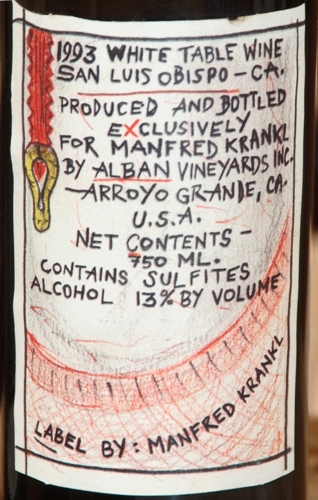 1993 WHITE TABLE WINE
SAN LUIS OBISPO - CA.
PRODUCED AND BOTTLED
EXCLUSIVELY
FOR MANFRED KRANKL
BY ALBAN VINEYARDS INC.
-ARROYO GRANDE, CA-
U.S.A.
NET CONTENTS -
750 ML.
CONTAINS SULFITES
ALCOHOL 13% BY VOLUME
LABEL BY: MANFRED KRANKL